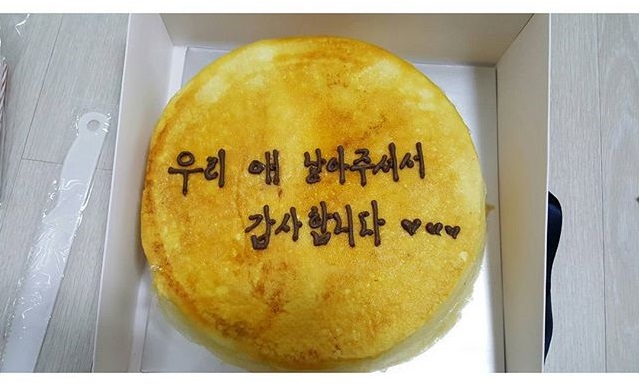 우리 애 낳아주셔서
감사합니다 ♥♥♥